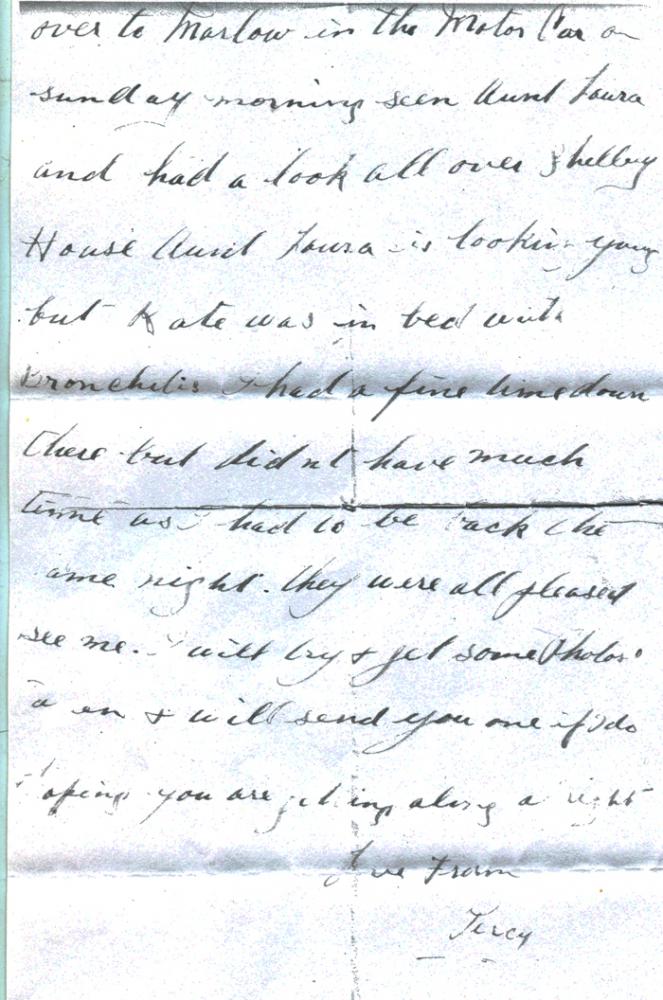 over to Marlow in the Motor Car on
sunday morning seen Aunt Laura
and had a look all over Shelley
House Aunt Laura is looking young
but Kate was in bed with
Bronchitis I had a fine time down
there but didnt have much
time as I had to be back the
same night. they were all pleased
see me. I will try & get some Photos
& will send you one if I do
Hoping you are getting along a right
Love From
Percy